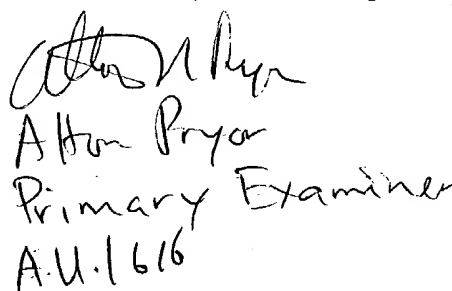 Alton N Pryor
Alton Pryor
Primary Examiner
A.U.1616